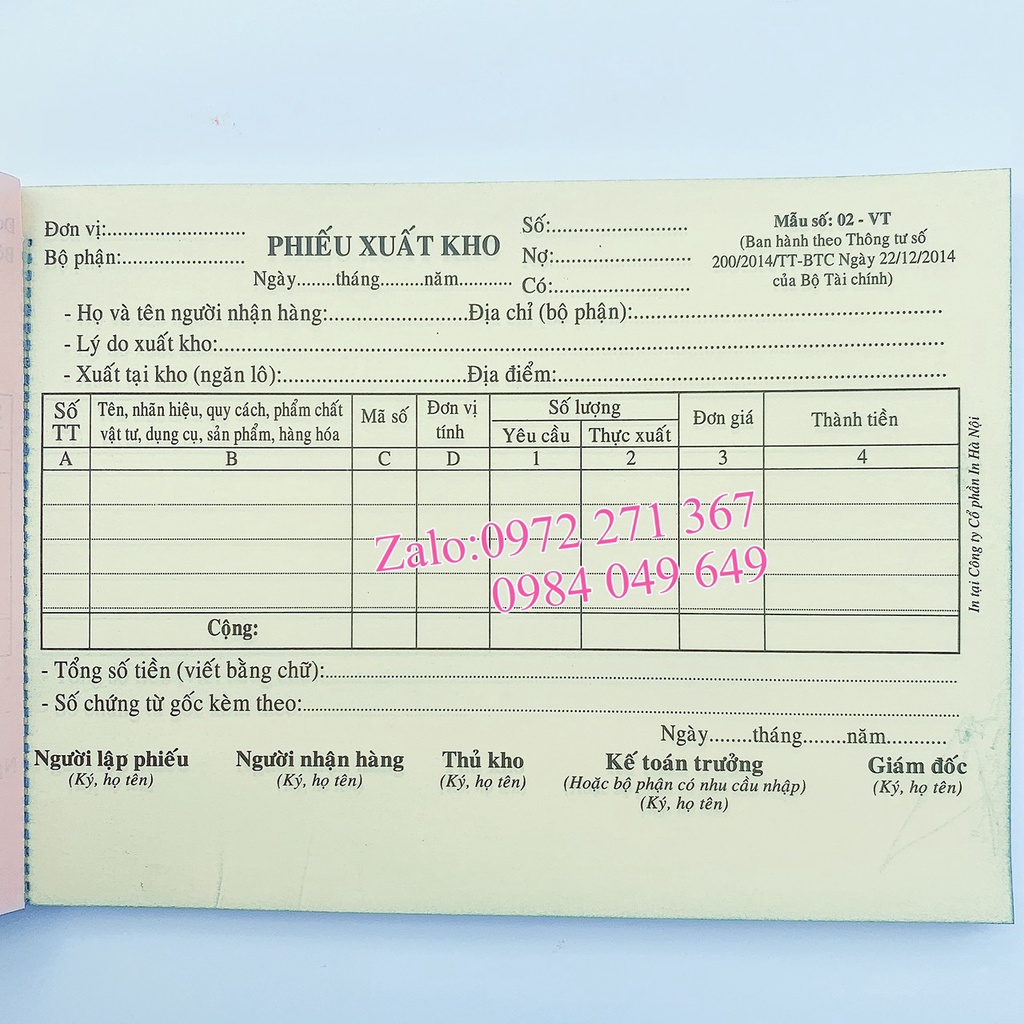 Đơn vị:..........................
Bộ phận:.......................
PHIẾU XUẤT KHO
Ngày........tháng.........năm...........
Số:..........................
Nợ:..........................
Có:..........................
Mẫu số: 02 - VT
(Ban hành theo Thông tư số
200/2014/TT-BTC Ngày 22/12/2014
của Bộ Tài chính)
- Họ và tên người nhận hàng:..........................Địa chỉ (bộ phận):..........................
- Lý do xuất kho:..........................
- Xuất tại kho (ngăn lô):..........................Địa điểm:..........................
Số TT
Tên, nhãn hiệu, quy cách, phẩm chất
vật tư, dụng cụ, sản phẩm, hàng hóa
Mã số
Đơn vị tính
Số lượng
Yêu cầu Thực xuất
Đơn giá
Thành tiền
A B C D 1 2 3 4
Zalo:0972 271 367
0984 049 649
Cộng:
In tại Công ty Cổ phần In Hà Nội
- Tổng số tiền (viết bằng chữ):..........................
- Số chứng từ gốc kèm theo:..........................
Ngày........tháng........năm...........
Người lập phiếu Người nhận hàng Thủ kho Kế toán trưởng Giám đốc
(Ký, họ tên) (Ký, họ tên) (Ký, họ tên) (Hoặc bộ phận có nhu cầu nhập) (Ký, họ tên)
(Ký, họ tên)